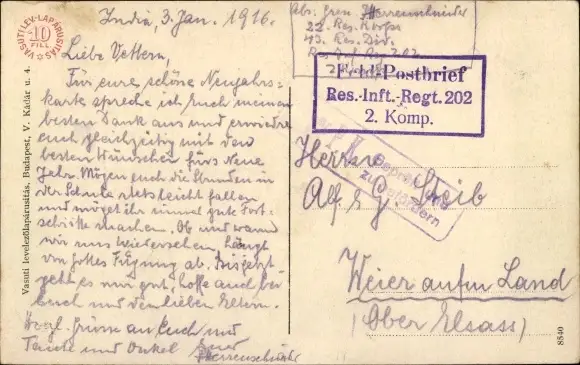 India, 3. Jan. 1916.
Liebe Vettern,
Für eure schöne Neujahrs-
karte spreche ich Euch meinen
besten Dank aus und erwiedre
euch gleichzeitig mit den
besten Wünschen fürs Neue
Jahr. Mögen euch die Stunden in
der Schule stets leicht fallen
und möget ihr einmal gute Fort-
schritte machen. Ob und wann
wir uns wiedersehen, hängt
von Gottes Fügung ab. Bis jetzt
geht es mir gut, hoffe auch bei
Euch und den lieben Eltern.
Herzl. Grüsse an Euch und
Tante und Onkel Euer
Herrenschneider
Abs: Gren. Herrenschneider
22. Res. Korps
43. Res. Div.
Res. Inf. Reg. 202
2. Komp.
Feld-Postbrief
Res.-Inft.-Regt. 202
2. Komp.
zu befördern
Herren
Alf. & J. Steib
Weier auf'm Land
(Ober Elsass)
VASUTI LEV.-LAP.ÁRUSITÁS
10
FILL.
Vasuti levelezőlapárusitás, Budapest, V. Kádár u. 4.
8540